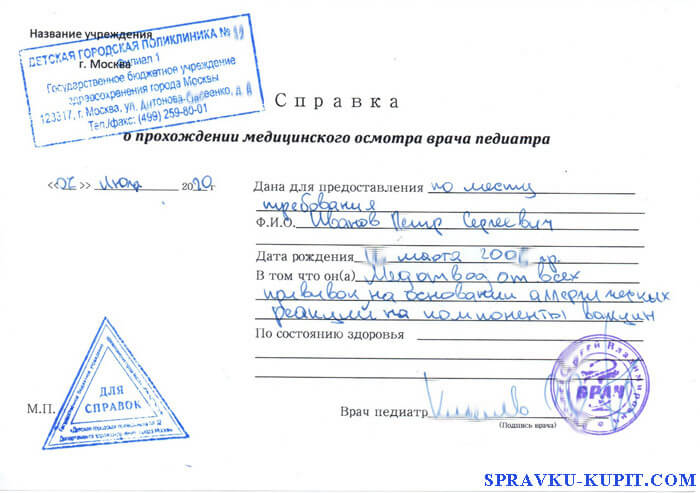 Название учреждения
г. Москва
ДЕТСКАЯ ГОРОДСКАЯ ПОЛИКЛИНИКА №
Филиал 1
Государственное бюджетное учреждение
здравоохранения города Москвы
123317, г. Москва, ул. Антонова-Овсеенко, д.
Тел./факс: (499) 259-80-01
Справка
о прохождении медицинского осмотра врача педиатра
« » 20 г.
Дана для предоставления по месту
требования
Ф.И.О. Иванов Петр Сергеевич
Дата рождения марта 200 гр.
В том что он(а) Медотвод от всех
прививок на основании аллергических
реакций на компоненты вакцин
По состоянию здоровья
М.П.
ДЛЯ
СПРАВОК
Врач педиатр
(Подпись врача)
Сергей Владимирович
ВРАЧ
SPRAVKU-KUPIT.COM